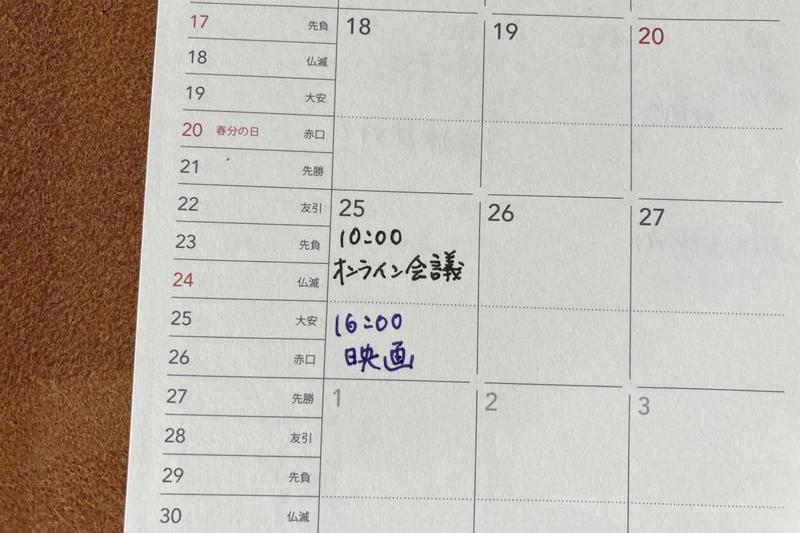 17 先負
18 仏滅
19 大安
20 春分の日 赤口
21 先勝
22 友引
23 先負
24 仏滅
25 大安
26 赤口
27 先勝
28 友引
29 先負
30 仏滅
18 19 20
25 26 27
10:00
オンライン会議
16:00
映画
1 2 3